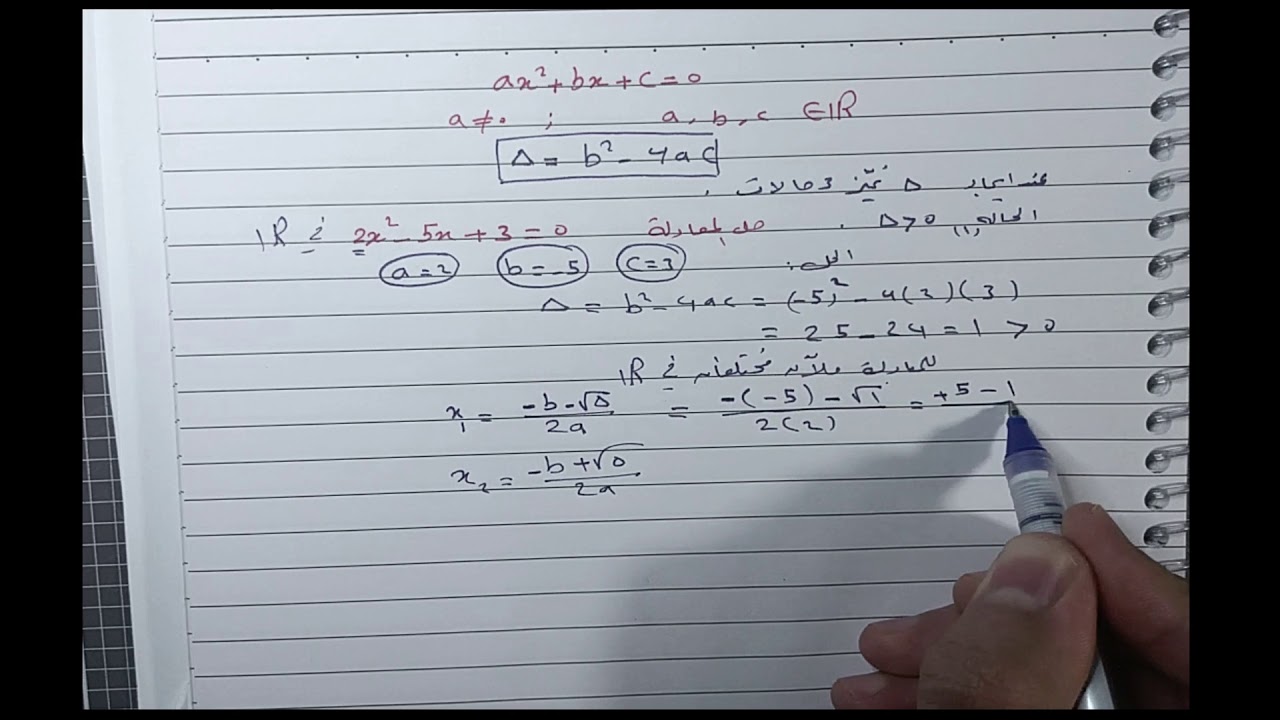 ax² + bx + c = 0
a ≠ 0 ; a, b, c ∈ IR
Δ = b² - 4ac
عند ايجاد Δ نميّز 3 حالات .
الحالة (1) Δ > 0 . حل المعادلة 2x² - 5x + 3 = 0 في IR
الحل: a = 2 b = -5 c = 3
Δ = b² - 4ac = (-5)² - 4(2)(3)
= 25 - 24 = 1 > 0
للمعادلة حلان مختلفان في IR
x₁ = (-b - √Δ)/2a = (-(-5) - √1)/2(2) = +5 - 1
x₂ = (-b + √Δ)/2a